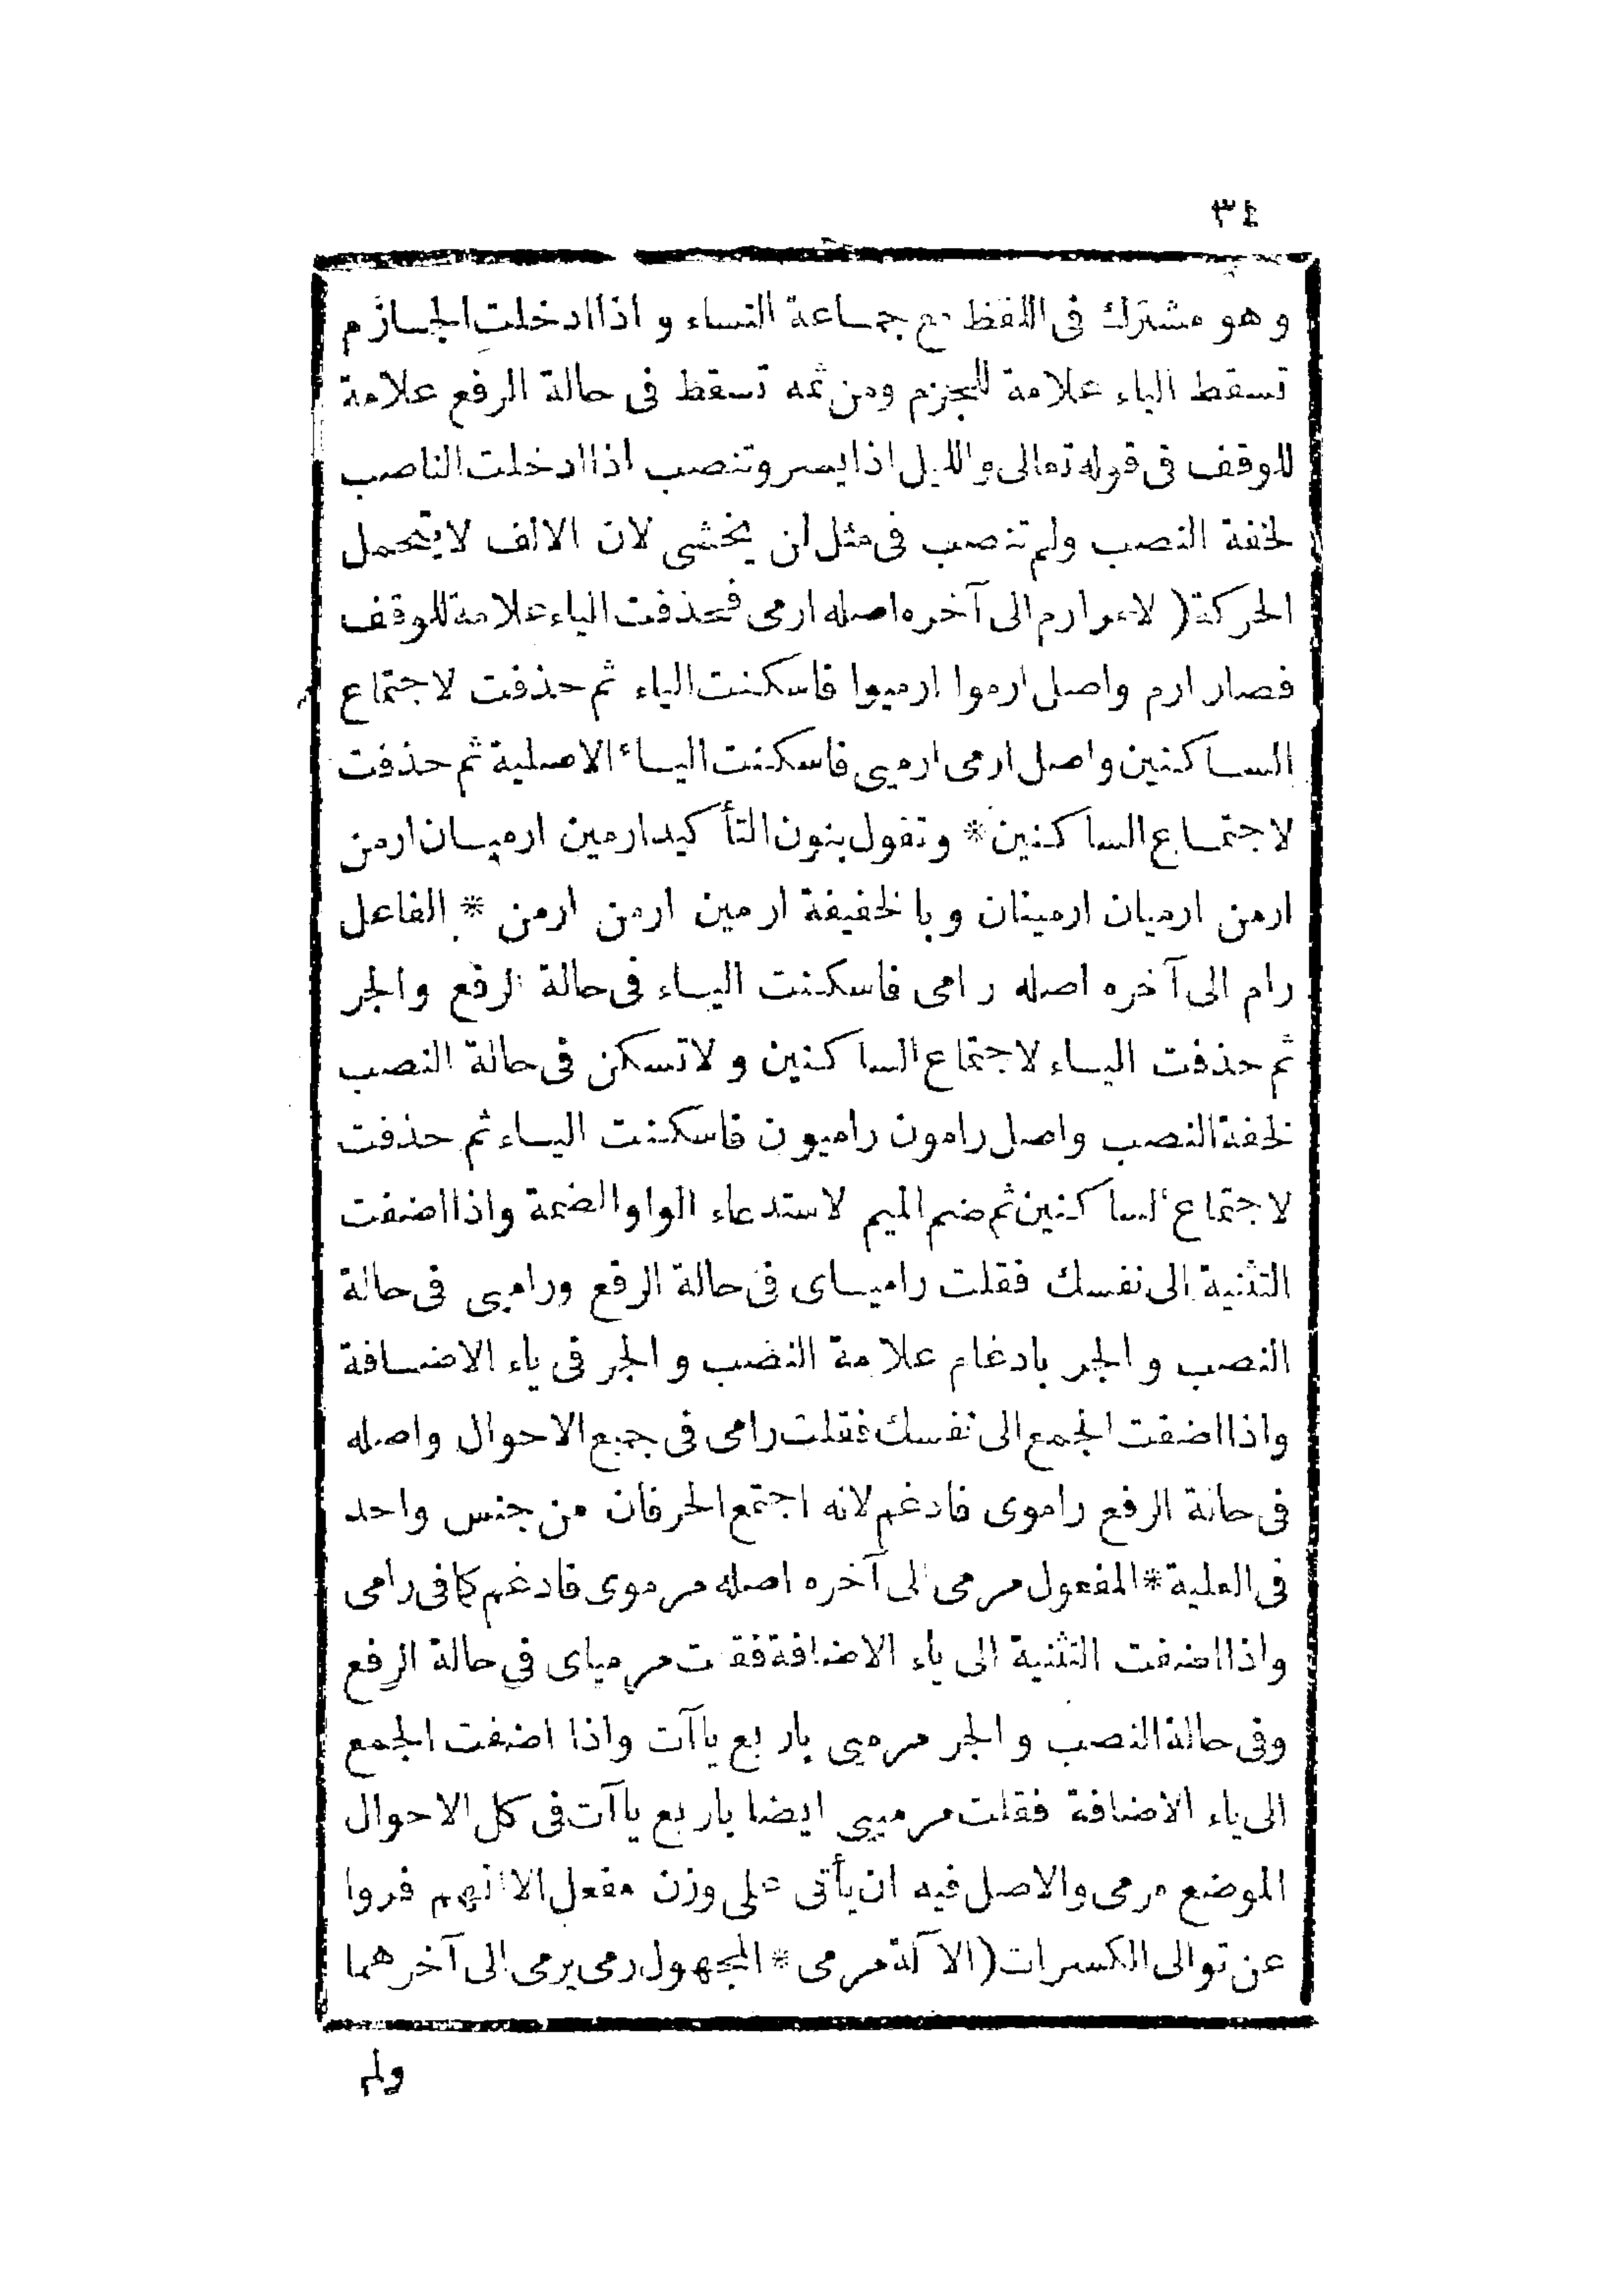 ٣٤
وهو مشترك فى اللفظ مع جماعة النساء واذا ادخلت الجازم
تسقط الياء علامة للجزم ومن ثمه تسقط فى حالة الرفع علامة
للوقف فى قوله تعالى والليل اذا يسر وتنصب اذا ادخلت الناصب
لخفة النصب ولم تنصب فى مثل ان يخشى لان الالف لا يتحمل
الحركة ( لامر ارم الى آخره اصله ارمى فحذفت الياء علامة للوقف
فصار ارم واصل ارموا ارميوا فاسكنت الياء ثم حذفت لاجتماع
الساكنين واصل ارمى ارميى فاسكنت الياء الاصلية ثم حذفت
لاجتماع الساكنين * وتقول بنون التأكيد ارمين ارميان ارمن
ارمن ارميان ارمينان وبالخفيفة ارمين ارمن ارمن * الفاعل
رام الى آخره اصله رامى فاسكنت الياء فى حالة الرفع والجر
ثم حذفت الياء لاجتماع الساكنين ولا تسكن فى حالة النصب
لخفة النصب واصل رامون راميون فاسكنت الياء ثم حذفت
لاجتماع الساكنين ثم ضم الميم لاستدعاء الواو الضمة واذا اضفت
التثنية الى نفسك فقلت رامياى فى حالة الرفع وراميى فى حالة
النصب والجر بادغام علامة النصب والجر فى ياء الاضافة
واذا اضفت الجمع الى نفسك فقلت رامى فى جميع الاحوال واصله
فى حالة الرفع راموى فادغم لانه اجتمع الحرفان من جنس واحد
فى العلية * المفعول مرمى الى آخره اصله مرموى فادغم كما فى رامى
واذا اضفت التثنية الى ياء الاضافة فقلت مرمياى فى حالة الرفع
وفى حالة النصب والجر مرميى باربع ياآت واذا اضفت الجمع
الى ياء الاضافة فقلت مرميى ايضا باربع ياآت فى كل الاحوال
الموضع مرمى والاصل فيه ان يأتى على وزن مفعل الا انهم فروا
عن توالى الكسرات ( الآلة مرمى * المجهول رمى يرمى الى آخرهما
ولم